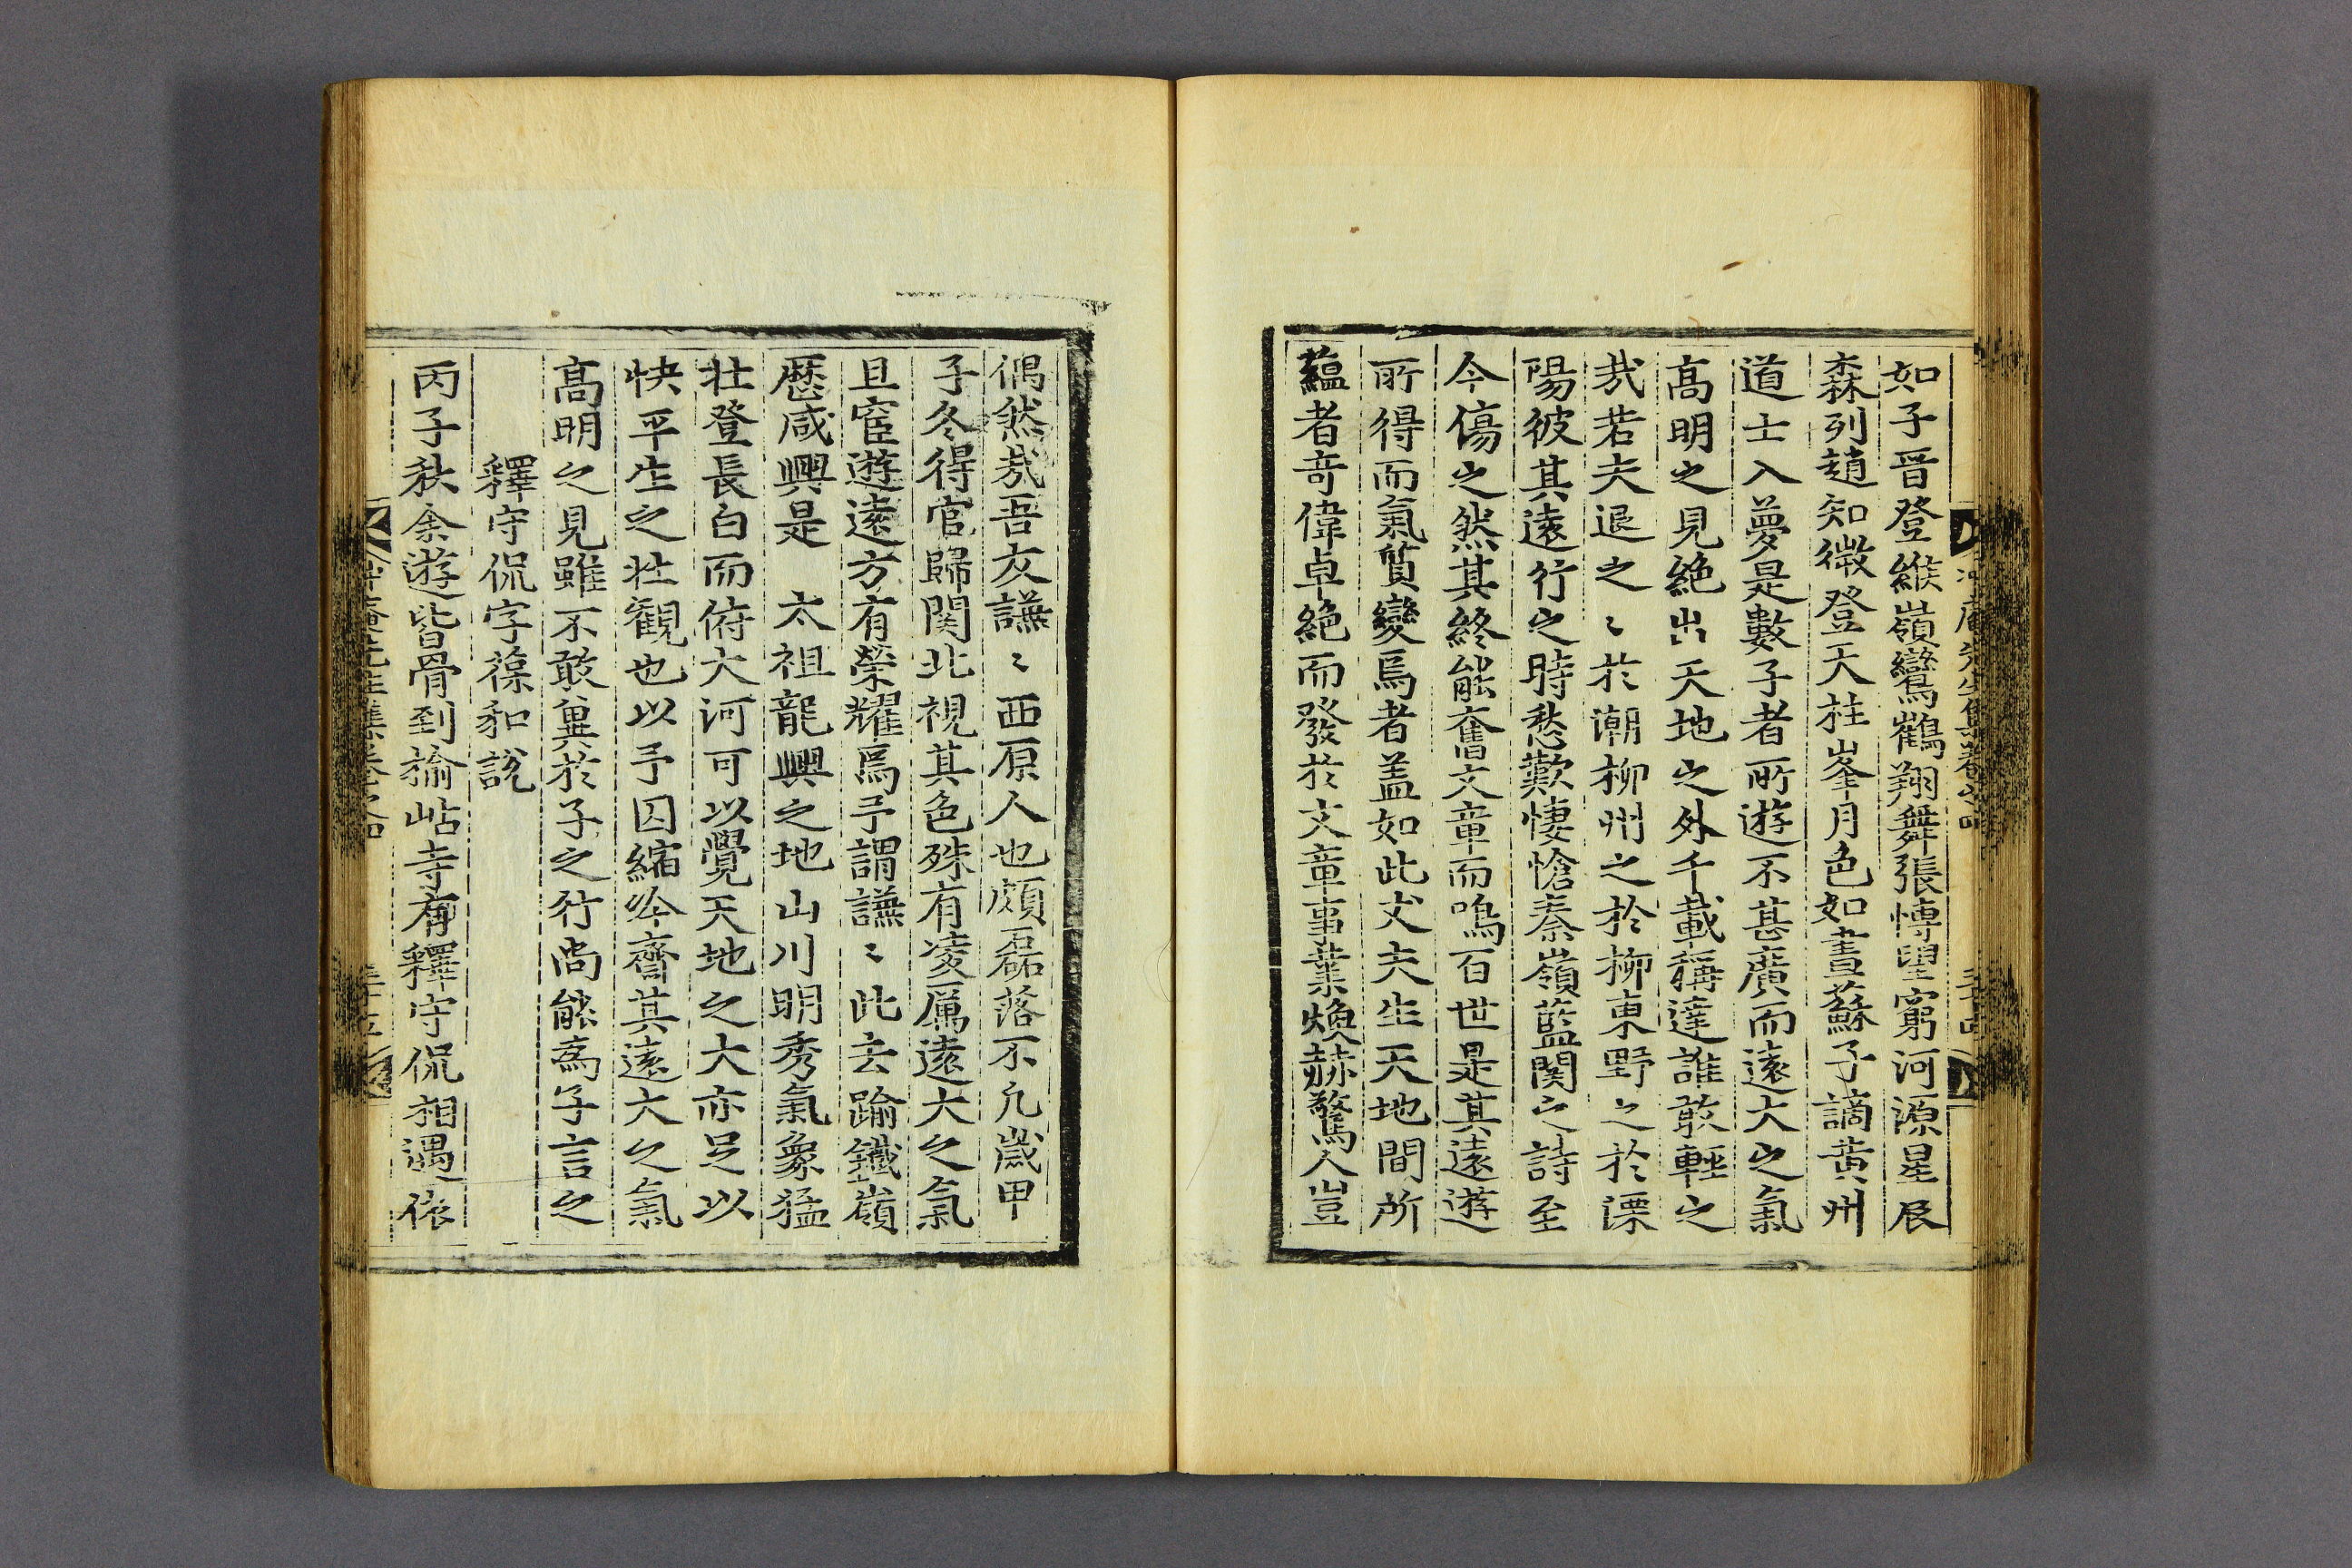 如子晉登緱嶺鸞鶴翔舞張愽望窮河源星辰
森列趙知微登天柱峯月色如晝蘇子謫黃州
道士入夢是數子者所遊不甚廣而遠大之氣
高明之見絶出天地之外千載稱達誰敢輕之
㢤若夫退之〻於潮柳州之於柳東野之於溧
陽彼其遠行之時愁歎悽愴秦嶺藍関之詩至
今傷之然其終能奮文章而鳴百世是其遠遊
所得而氣質變焉者盖如此丈夫生天地間所
蘊者竒偉卓絶而發於文章事業煥赫驚人豈
偶然㢤吾友謙〻西原人也頗磊落不凡歲甲
子冬得官歸関北視其色殊有凌厲遠大之氣
且宦遊遠方有榮耀焉予謂謙〻此去踰鐵嶺
歷咸興是 太祖龍興之地山川明秀氣象猛
壯登長白而俯大河可以覺天地之大亦足以
快平生之壯觀也以予囚縮吟齋其遠大之氣
高明之見雖不敢兾於子之行尚能為子言之
釋守侃字葆和說
丙子秋余遊皆骨到揄岾寺有釋守侃相遇依